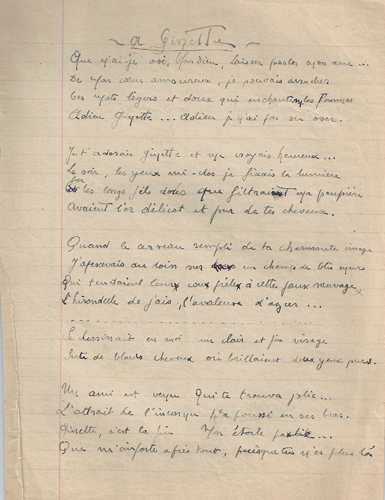 - A Ginette -
Que n'ai-je osé, Gordieu, laisser parler mon âme...
De mon cœur amoureux, je pouvais arracher
Ces mots légers et doux qui enchantent les Femmes
Adieu Ginette... Adieu je n'ai pas su oser.
Je t'adorais Ginette et me croyais heureux...
Le soir, les yeux mi-clos je fixais la lumière
les longs fils dorés que filtrait ma paupière
Avaient l'or délicat et pur de tes cheveux.
Quand le cerveau rempli de ta charmante image
J'apercevais au loin sur un champ de blés mûrs
Qui tendaient leurs cous frêles à cette faux sauvage
L'hirondelle de jais, l'avaleuse d'azur...
Se dessinait en moi un clair et fin visage
de blonds cheveux où brillaient deux yeux purs.
Un ami est venu Qui te trouva jolie...
L'attrait de l'inconnu t'a poussé en ses bras.
Ginette, c'est la fin Mon étoile pâlit...
Que m'importe après tout, puisque tu n'es plus là